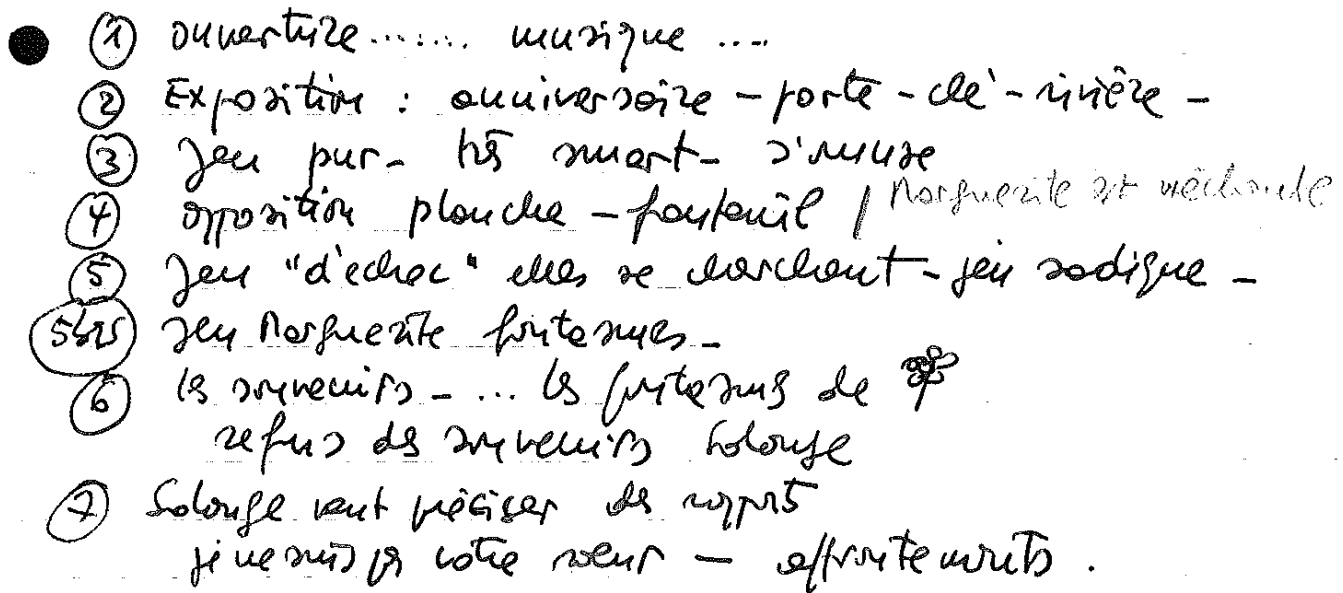 ① ouverture....... musique ....
② Exposition : anniversaire - porte - clé - rivière -
③ Jeu pur - très smart - s'amuse
④ opposition planche - fauteuil / Marguerite est méchante
⑤ Jeu "d'echec" elles se cherchent - jeu sadique -
5bis Jeu Marguerite fantasmes -
⑥ les souvenirs - ... les fantasmes de
refus des souvenirs Solange
⑦ Solange veut préciser des rapports
je ne suis pas votre soeur - affrontements .